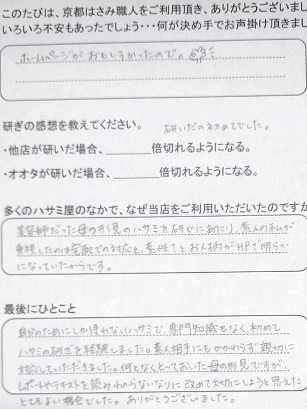 このたびは、京都はさみ職人をご利用頂き、ありがとうございまし
いろいろ不安もあったでしょう・・・何が決め手でお声掛け頂きまし
ホームページがおもしろかったので。
研ぎの感想を教えてください。 研いだの初めてでした。
・他店が研いだ場合、______倍切れるようになる。
・オオタが研いだ場合、______倍切れるようになる。
多くのハサミ屋のなかで、なぜ当店をご利用いただいたのですか
美容師だった母の形見のハサミを研ぐにあたり、素人の私が
重視したのは宅配での対応と、素性?とお人柄がHPで明らか
になっていたからです。
最後にひとこと
自分のためにしか使わないハサミで、専門知識もなく、初めて
ハサミの研ぎを経験しました。素人相手にもかかわらず、親切に
対応していただきました。何となくとっておいた母の形見ですが、
レポートやテキストを読みわからないなりに改めて大切にしようと思えた
とてもよい機会でした。ありがとうございました。